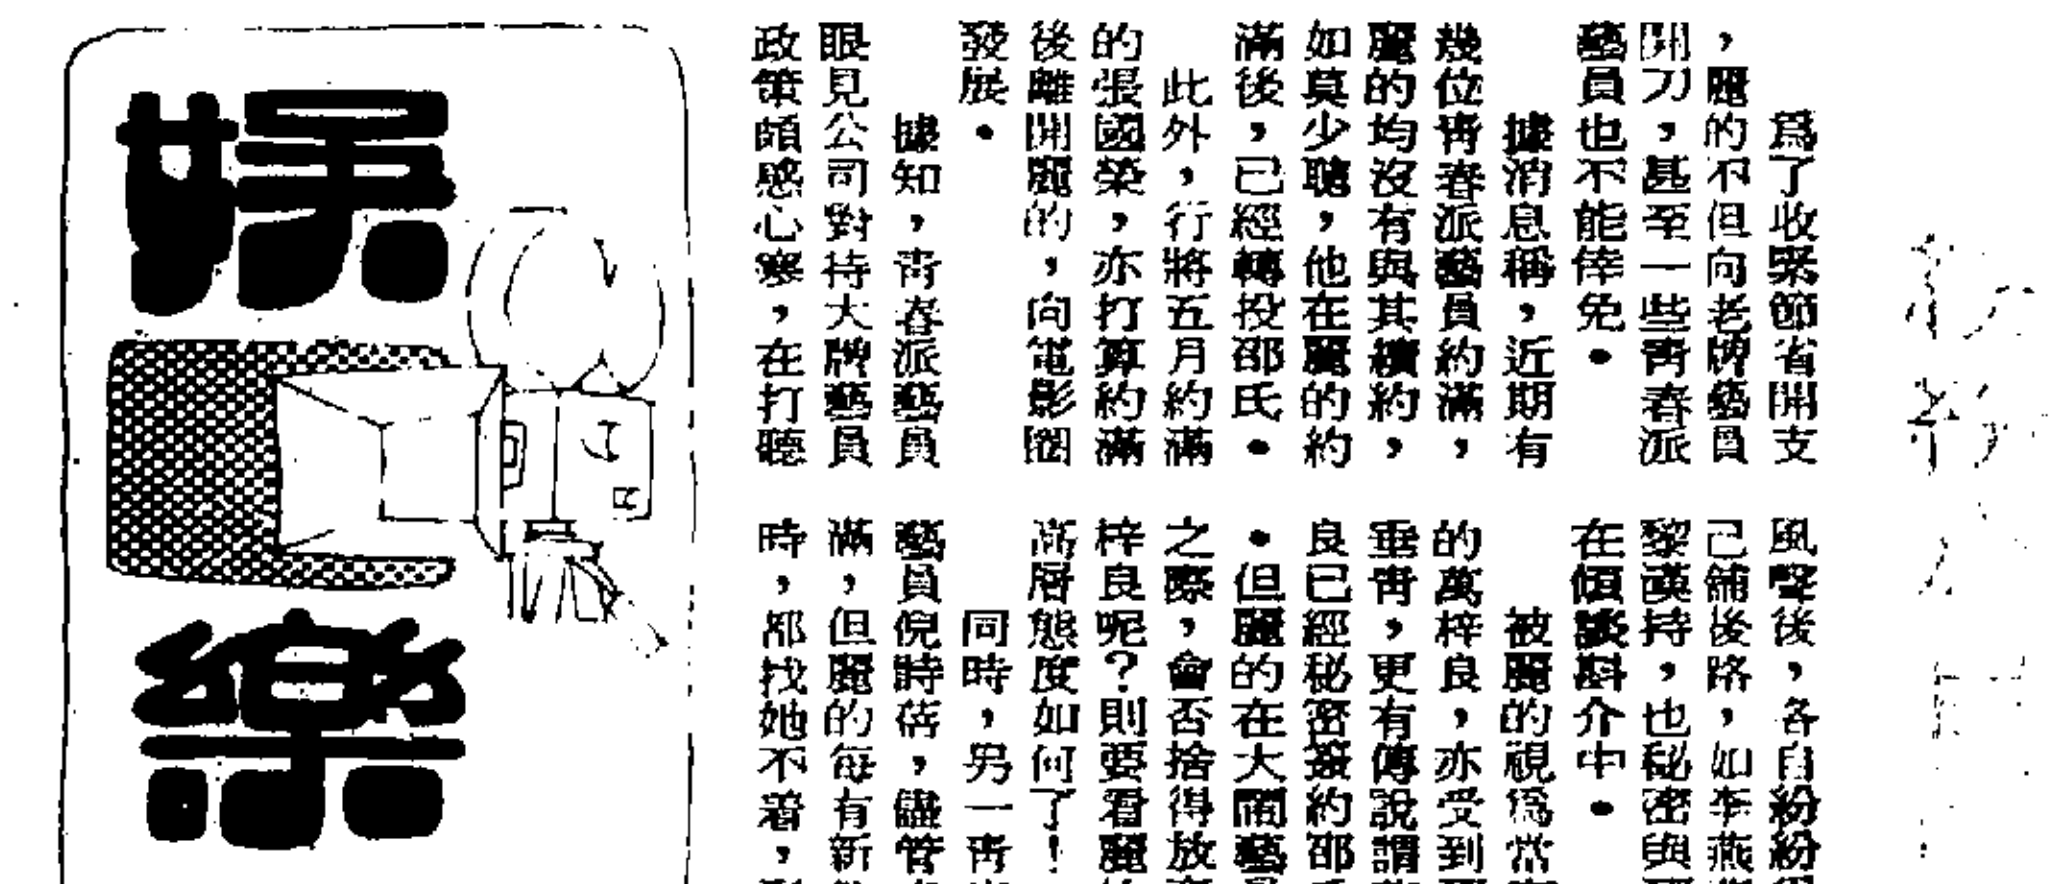 爲了收緊節省開支
，麗的不但向老牌藝員
開刀，甚至一些靑春派
藝員也不能倖免。
據消息稱，近期有
幾位靑春派藝員約滿，
麗的均沒有與其續約，
如莫少聰，他在麗的約
滿後，已經轉投邵氏。
此外，行將五月約滿
的張國榮，亦打算約滿
後離開麗的，向電影圈
發展。
據知，靑春派藝員
眼見公司對待大牌藝員
政策頗感心寒，在打聽
風聲後，各自紛紛
己舖後路，如李燕
黎漢持，也秘密與
在傾談斟介中。
被麗的視爲常
的萬梓良，亦受到
垂靑，更有傳說謂
良已經秘密簽約邵
。但麗的在大鬧藝
之際，會否捨得放
梓良呢？則要看麗
高層態度如何了！
同時，另一靑
藝員倪詩蓓，儘管
滿，但麗的每有新
時，都找她不着，
娛樂